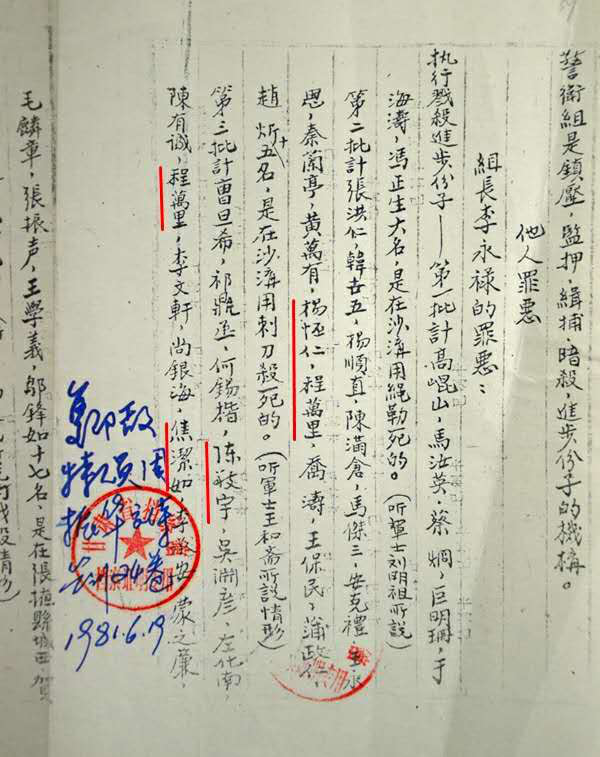 警衛組是鎮壓，監押，緝捕，暗殺，進步份子的機構。
他人罪悪
組長李永禄的罪悪：
执行戮殺進步份子——第一批計高崐山，馬汝英，蔡炯，巨明珊，于
海濤，馮正生大名，是在沙溝用绳勒死的。（听軍士刘明祖所説）
第二批計張洪仁，韓去五，楊順直，陳滿倉，馬傑三，安克禮，永
恩，秦蘭亭，黄萬有，楊恆仁，程萬里，喬濤，王保民，蒲政
趙炘十五名，是在沙溝用刺刀殺死的。（听軍士王和斋所説情形）
第三批計曹旦希，祁鼎丞，何錫楷，陈敬宇，吴渊彦，左化南，
陳有诚，程萬里，李文軒，尚銀海，焦潔如，李安，蒙之廉，
毛麟章，張振声，王学義，鄔鋒如十七名，是在張掖縣城西
1981.6.19